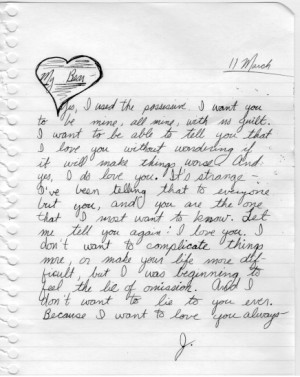 11 March
My Ben
Yes, I used the possessive. I want you
to be mine, all mine, with no guilt.
I want to be able to tell you that
I love you without wondering if
it will make things worse. And
yes, I do love you. It's strange –
I've been telling that to everyone
but you, and you are the one
that I most want to know. Let
me tell you again: I love you. I
don't want to complicate things
more, or make your life more dif-
ficult, but I was beginning to
feel the lie of omission. And I
don't want to lie to you ever.
Because I want to love you always–
J.